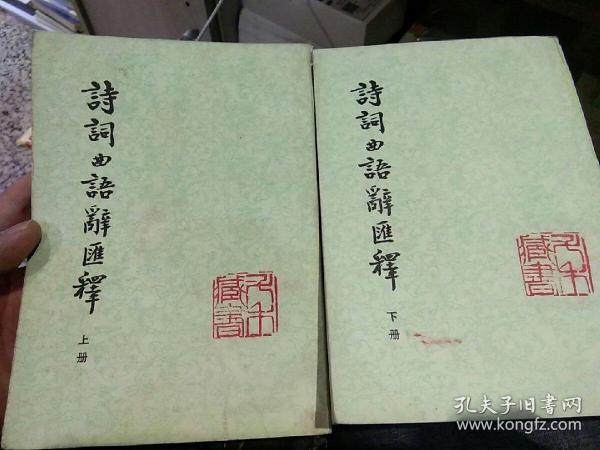 詩詞曲語辭匯釋
上册
藏書
詩詞曲語辭匯釋
下册
藏書
孔夫子旧书网
www.kongfz.com